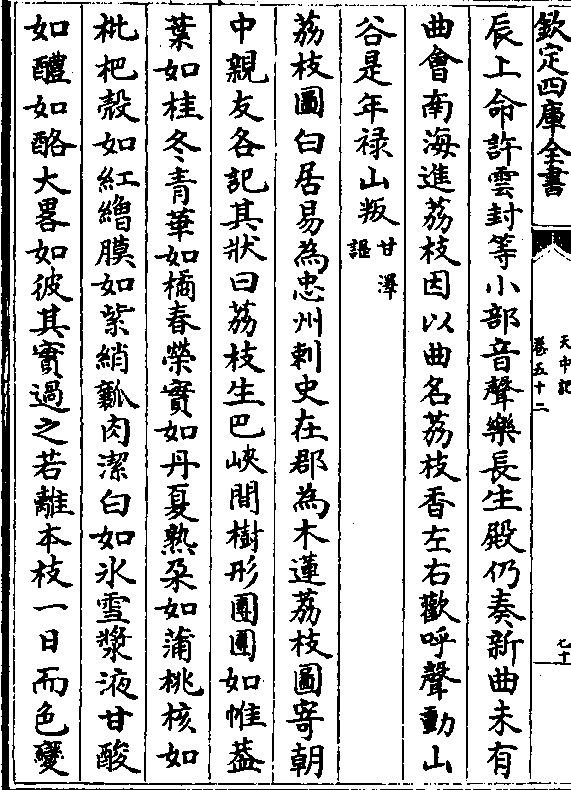 欽定四庫全書
天中記
卷五十二
七十
辰上命許雲封等小部音聲樂長生殿仍奏新曲未有
曲會南海進荔枝因以曲名荔枝香左右歡呼聲動山
谷是年禄山叛甘澤謡
荔枝圖白居易為忠州刺史在郡為木蓮荔枝圖寄朝
中親友各記其狀曰荔枝生巴峽間樹形團團如帷葢
葉如桂冬青華如橘春榮實如丹夏熟朶如蒲桃核如
枇杷殼如紅繒膜如紫綃瓤肉潔白如氷雪漿液甘酸
如醴如酪大畧如彼其實過之若離本枝一日而色變